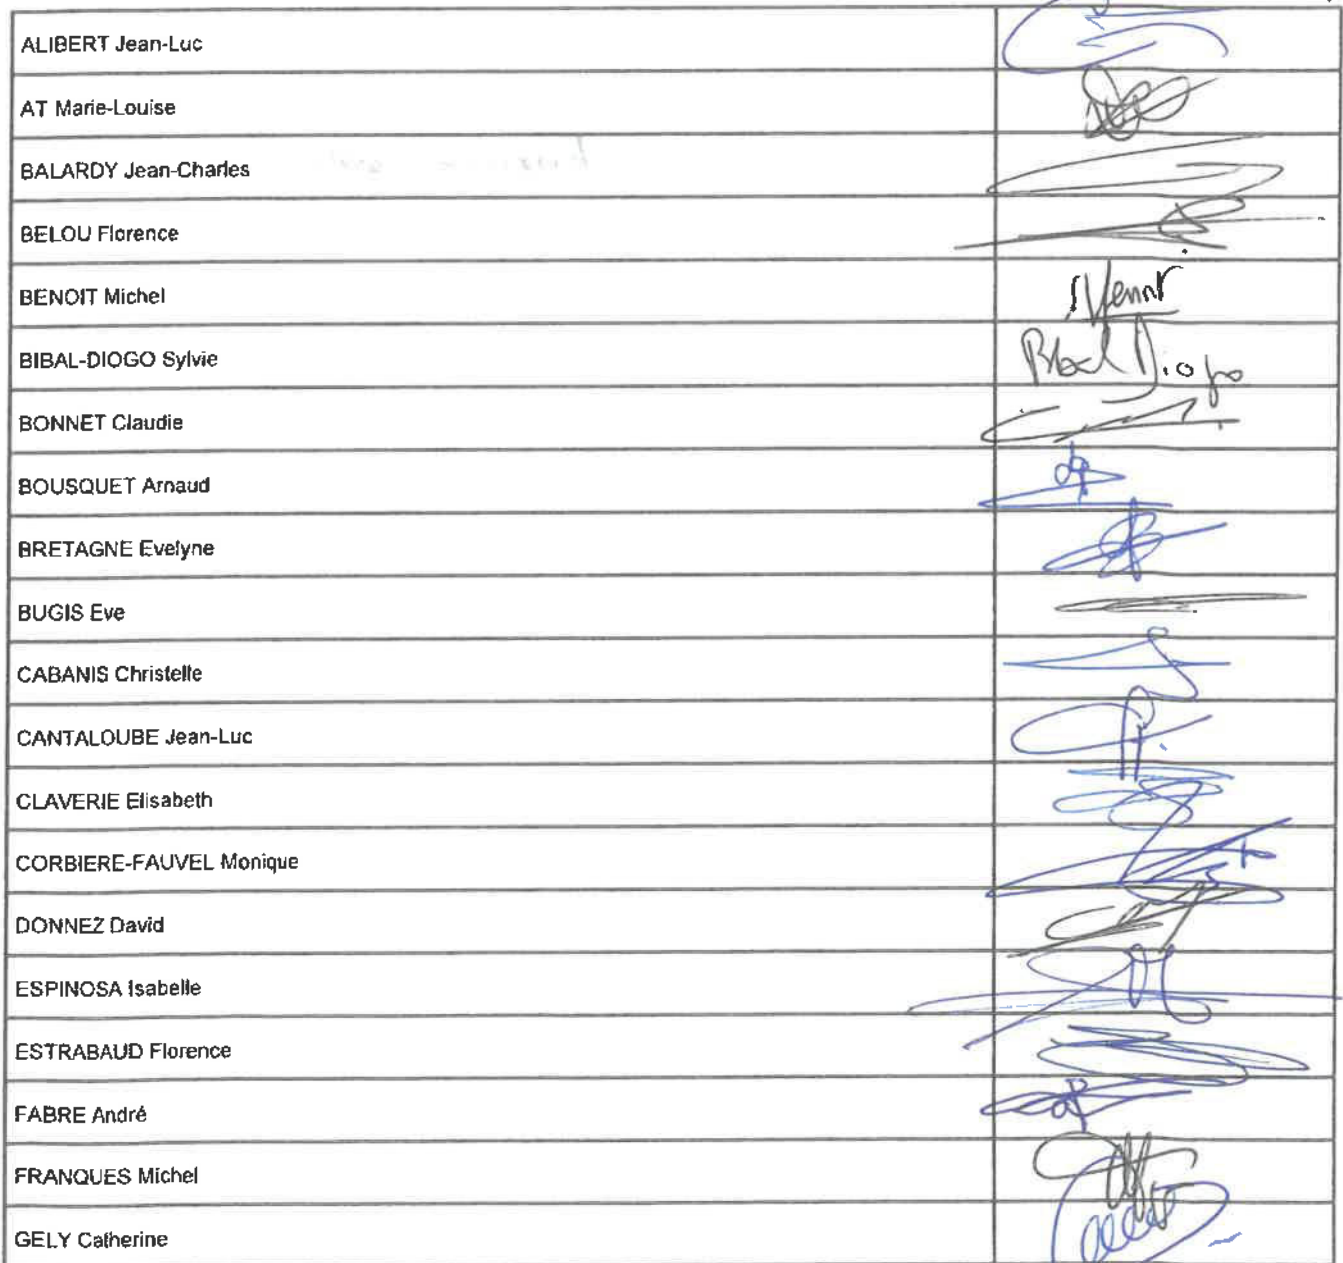 ALIBERT Jean-Luc
AT Marie-Louise
BALARDY Jean-Charles
BELOU Florence
BENOIT Michel
BIBAL-DIOGO Sylvie
BONNET Claudie
BOUSQUET Arnaud
BRETAGNE Evelyne
BUGIS Eve
CABANIS Christelle
CANTALOUBE Jean-Luc
CLAVERIE Elisabeth
CORBIERE-FAUVEL Monique
DONNEZ David
ESPINOSA Isabelle
ESTRABAUD Florence
FABRE André
FRANQUES Michel
GELY Catherine